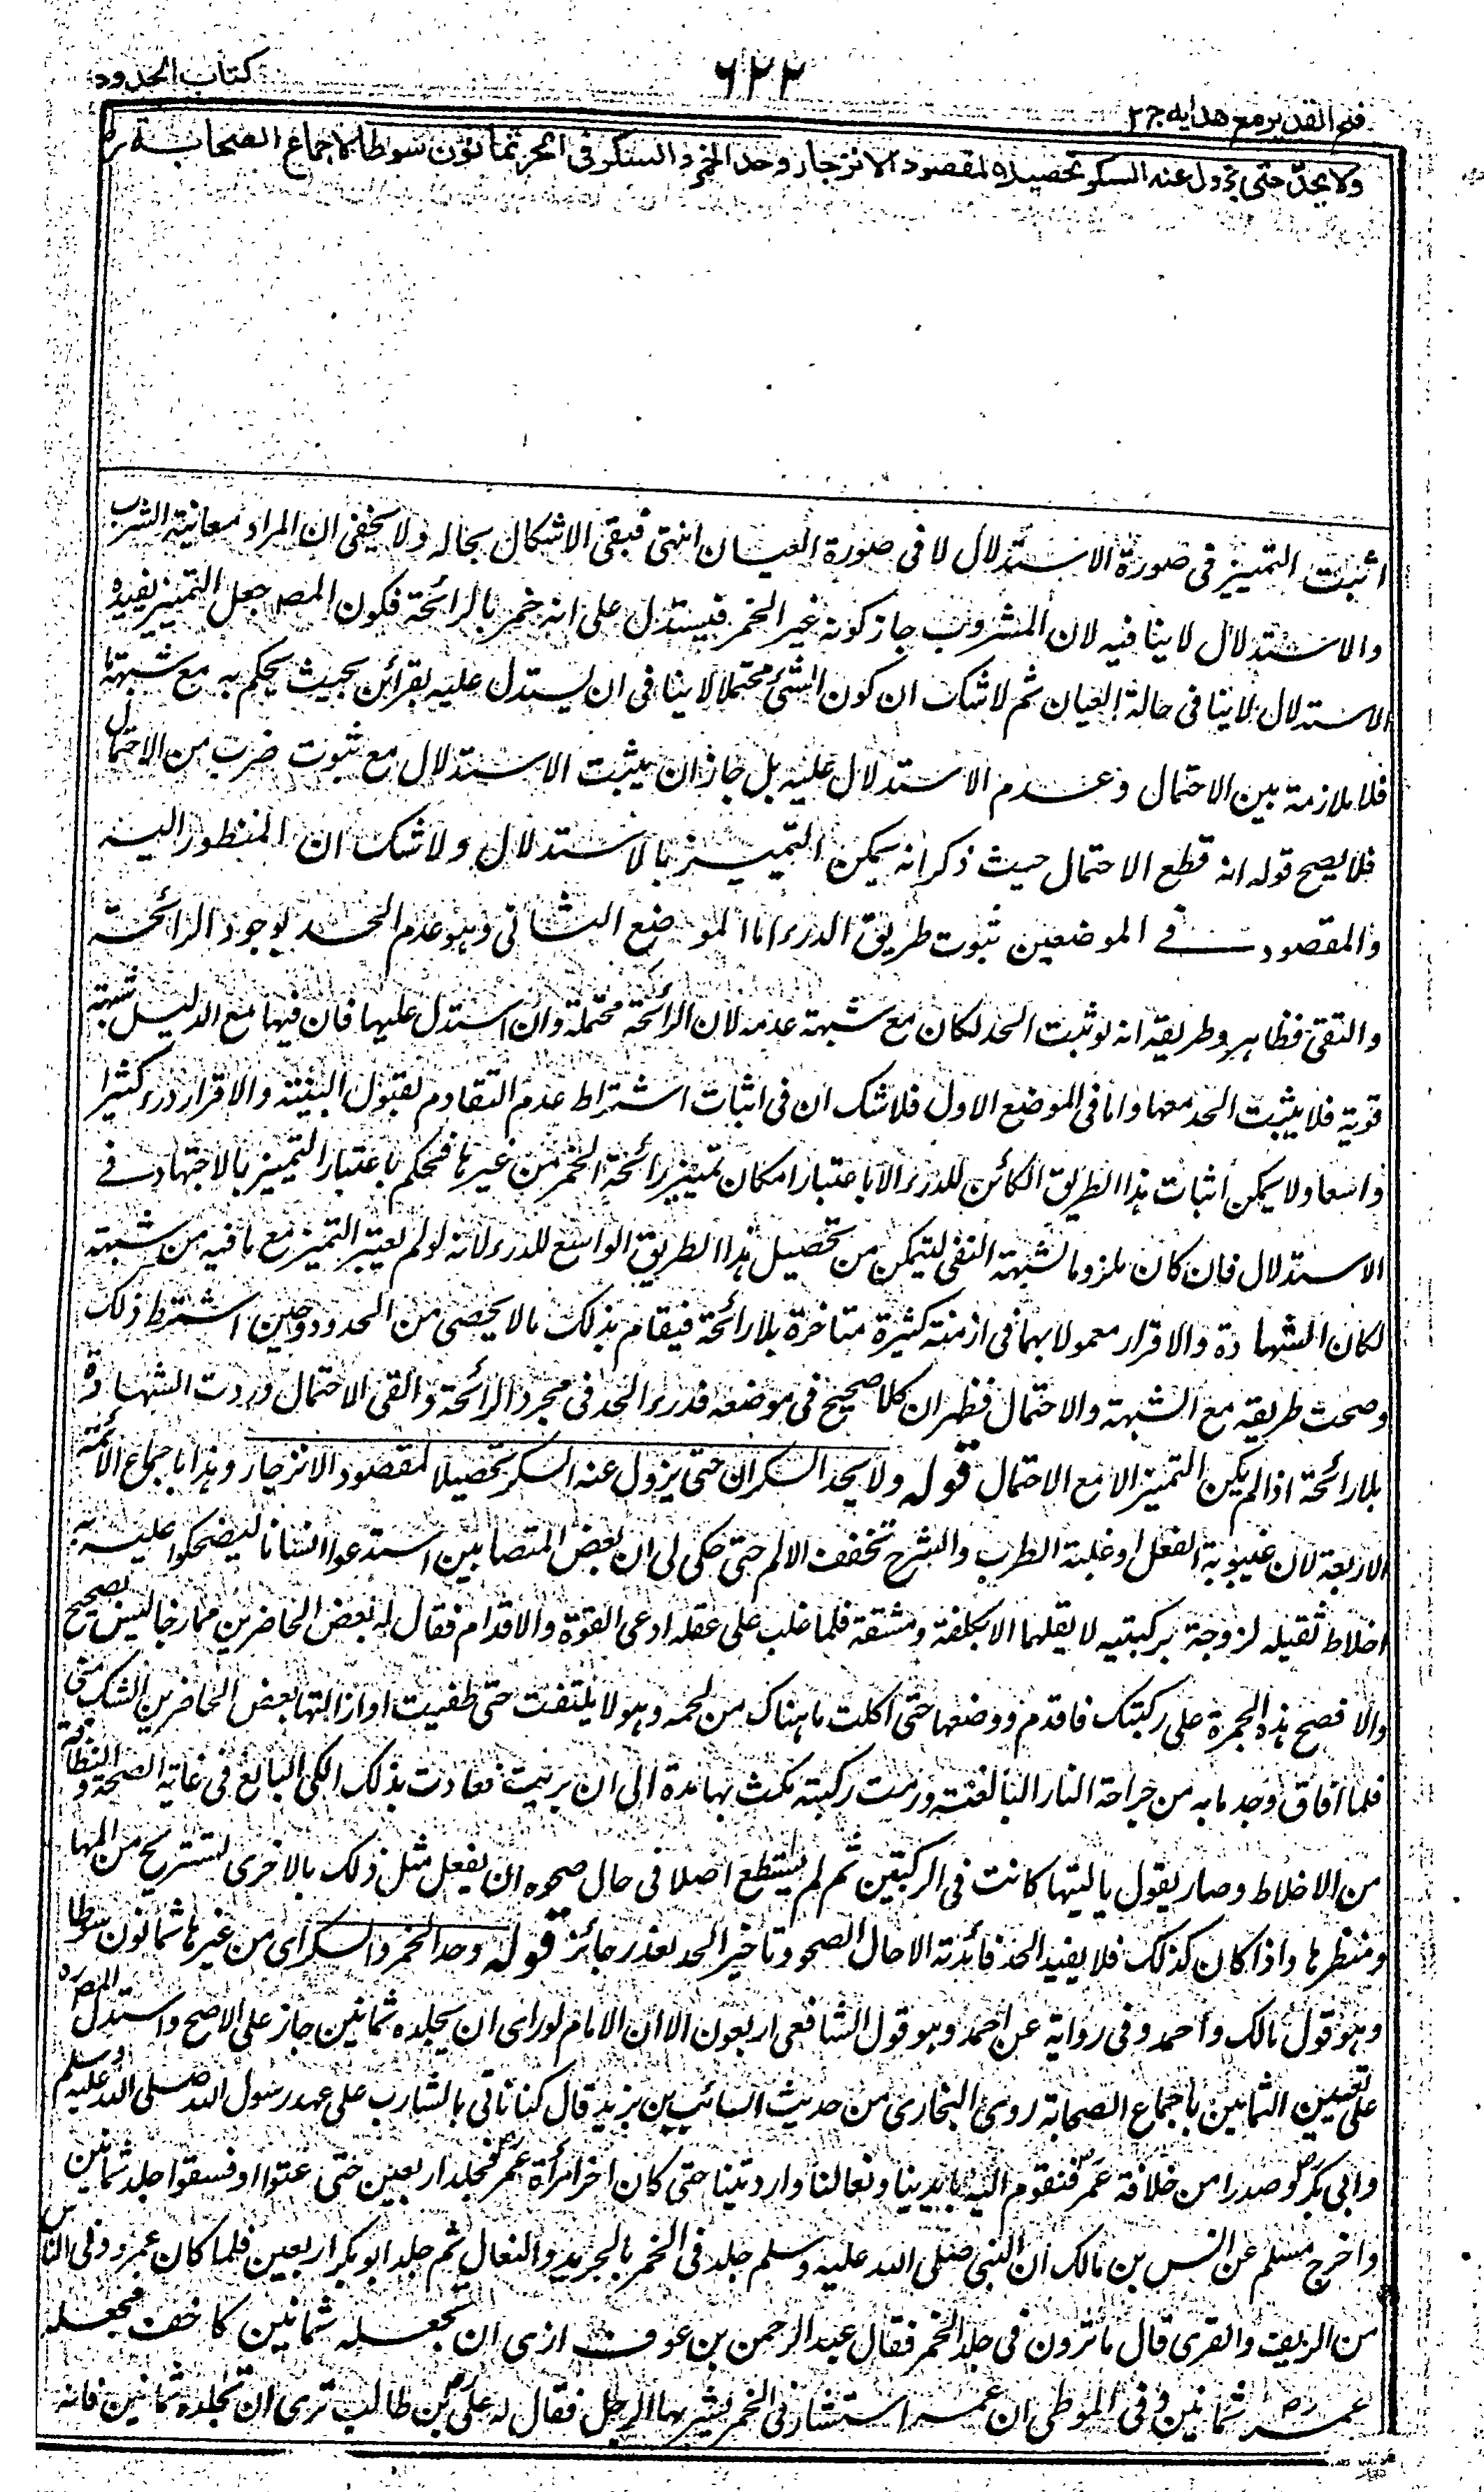 كتاب الحدود
٦٢٢
فتح القدير مع هدايه ج٢
ولا يحدّ حتى يزول عنه السكر تحصيلا لمقصود الانزجار وحد الخمر والسكر فى الحر ثمانون سوطا لاجماع الصحابة رض
اثبت التمييز فى صورة الاستدلال لا فى صورة العيان انتهى فبقى الاشكال بحاله ولا يخفى ان المراد معانية الشرب
والاستدلال لا ينافيه لان المشروب جاز كونه غير الخمر فيستدل على انه خمر بالرائحة فكون المص جعل التمييز يفيده
الاستدلال لا ينافى حالة العيان ثم لا شك ان كون الشئ محتملا لا ينافى ان يستدل عليه بقرائن بحيث يحكم به مع شبهة
فلا ملازمة بين الاحتمال وعدم الاستدلال عليه بل جاز ان يثبت الاستدلال مع ثبوت ضرب من الاحتمال
فلا يصح قوله انه قطع الاحتمال حيث ذكر انه يمكن التمييز بالاستدلال ولا شك ان المنظور اليه
والمقصود فى الموضعين ثبوت طريق الدرء اما الموضع الثانى وهو عدم الحد بوجود الرائحة
والتقئ فظاهر وطريقه انه لو ثبت الحد لكان مع شبهة عدمه لان الرائحة محتملة وان استدل عليها فان فيها مع الدليل شبهة
قوية فلا يثبت الحد معها واما فى الموضع الاول فلا شك ان فى اثبات اشتراط عدم التقادم لقبول البينة والاقرار درء كثيرا
واسعا ولا يمكن اثبات هذا الطريق الكائن للدرء الا باعتبار امكان تمييز رائحة الخمر من غيرها فحكم باعتبار التمييز بالاجتهاد فى
الاستدلال فان كان ملزوما لشبهة النفى ليتمكن من تحصيل هذا الطريق الواسع للدرء لانه لو لم يعتبر التمييز مع ما فيه من شبهة
لكان الشهادة والاقرار معمولا بهما فى ازمنة كثيرة متاخرة بلا رائحة فيقام بذلك ما لا يحصى من الحدود وحين اشترط ذلك
وصحت طريقه مع الشبهة والاحتمال فظهر ان كلا صحيح فى موضعه فدرء الحد فى مجرد الرائحة والقى الاحتمال وردت الشهادة
بلا رائحة اذا لم يكن التمييز الا مع الاحتمال قوله ولا يحد السكران حتى يزول عنه السكر تحصيلا لمقصود الانزجار وهذا باجماع الائمة
الاربعة لان غيبوبة العقل او غلبة الطرب والشرح تخفف الالم حتى حكى لى ان بعض المتصابين استدعوا انسانا ليضحكوا عليه به
اخلاط ثقيلة لزوجة بركبتيه لا يقلهما الا بكلفة ومشقة فلما غلب على عقله ادعى القوة والاقدام فقال له بعض الحاضرين ممازحا ليس بصحيح
والا فضع هذه الجمرة على ركبتك فاقدم ووضعها حتى اكلت ما هناك من لحمه وهو لا يلتفت حتى طفيت او ازالتها بعض الحاضرين الشك منى
فلما افاق وجد ما به من جراحة النار البالغة وورمت ركبته مكث بها مدة الى ان برئت فعادت بذلك الكى البالغ فى غاية الصحة والنظافة
من الاخلاط وصار يقول يا ليتها كانت فى الركبتين ثم لم يستطع اصلا فى حال صحوه ان يفعل مثل ذلك بالاخرى لتستريح من المها
ومنظرها واذا كان كذلك فلا يفيد الحد فائدته الا حال الصحو وتاخير الحد بعذر جائز قوله وحد الخمر والسكر اى من غيرها ثمانون سوطا
وهو قول مالك واحمد وفى رواية عن احمد وهو قول الشافعى اربعون الا ان الامام لو راى ان يجلده ثمانين جاز على الاصح واستدل المص رح
على تعيين الثمانين باجماع الصحابة روى البخارى من حديث السائب بن يزيد قال كنا ناتى بالشارب على عهد رسول الله صلى الله عليه وسلم
وابى بكر رض وصدرا من خلافة عمر رض فنقوم اليه بايدينا ونعالنا وارديتنا حتى كان اخر امرأة عمر رض فجلد اربعين حتى عتوا او فسقوا جلد ثمانين
واخرج مسلم عن انس بن مالك ان النبى صلى الله عليه وسلم جلد فى الخمر بالجريد والنعال ثم جلد ابو بكر اربعين فلما كان عمر ودنى الناس
من الريف والقرى قال ما ترون فى جلد الخمر فقال عبد الرحمن بن عوف ارى ان تجعله ثمانين كاخف فجعله
عمر رض ثمانين وفى الموطى ان عمر استشار فى الخمر يشربها الرجل فقال له على رض بن طالب ترى ان تجلده ثمانين فانه